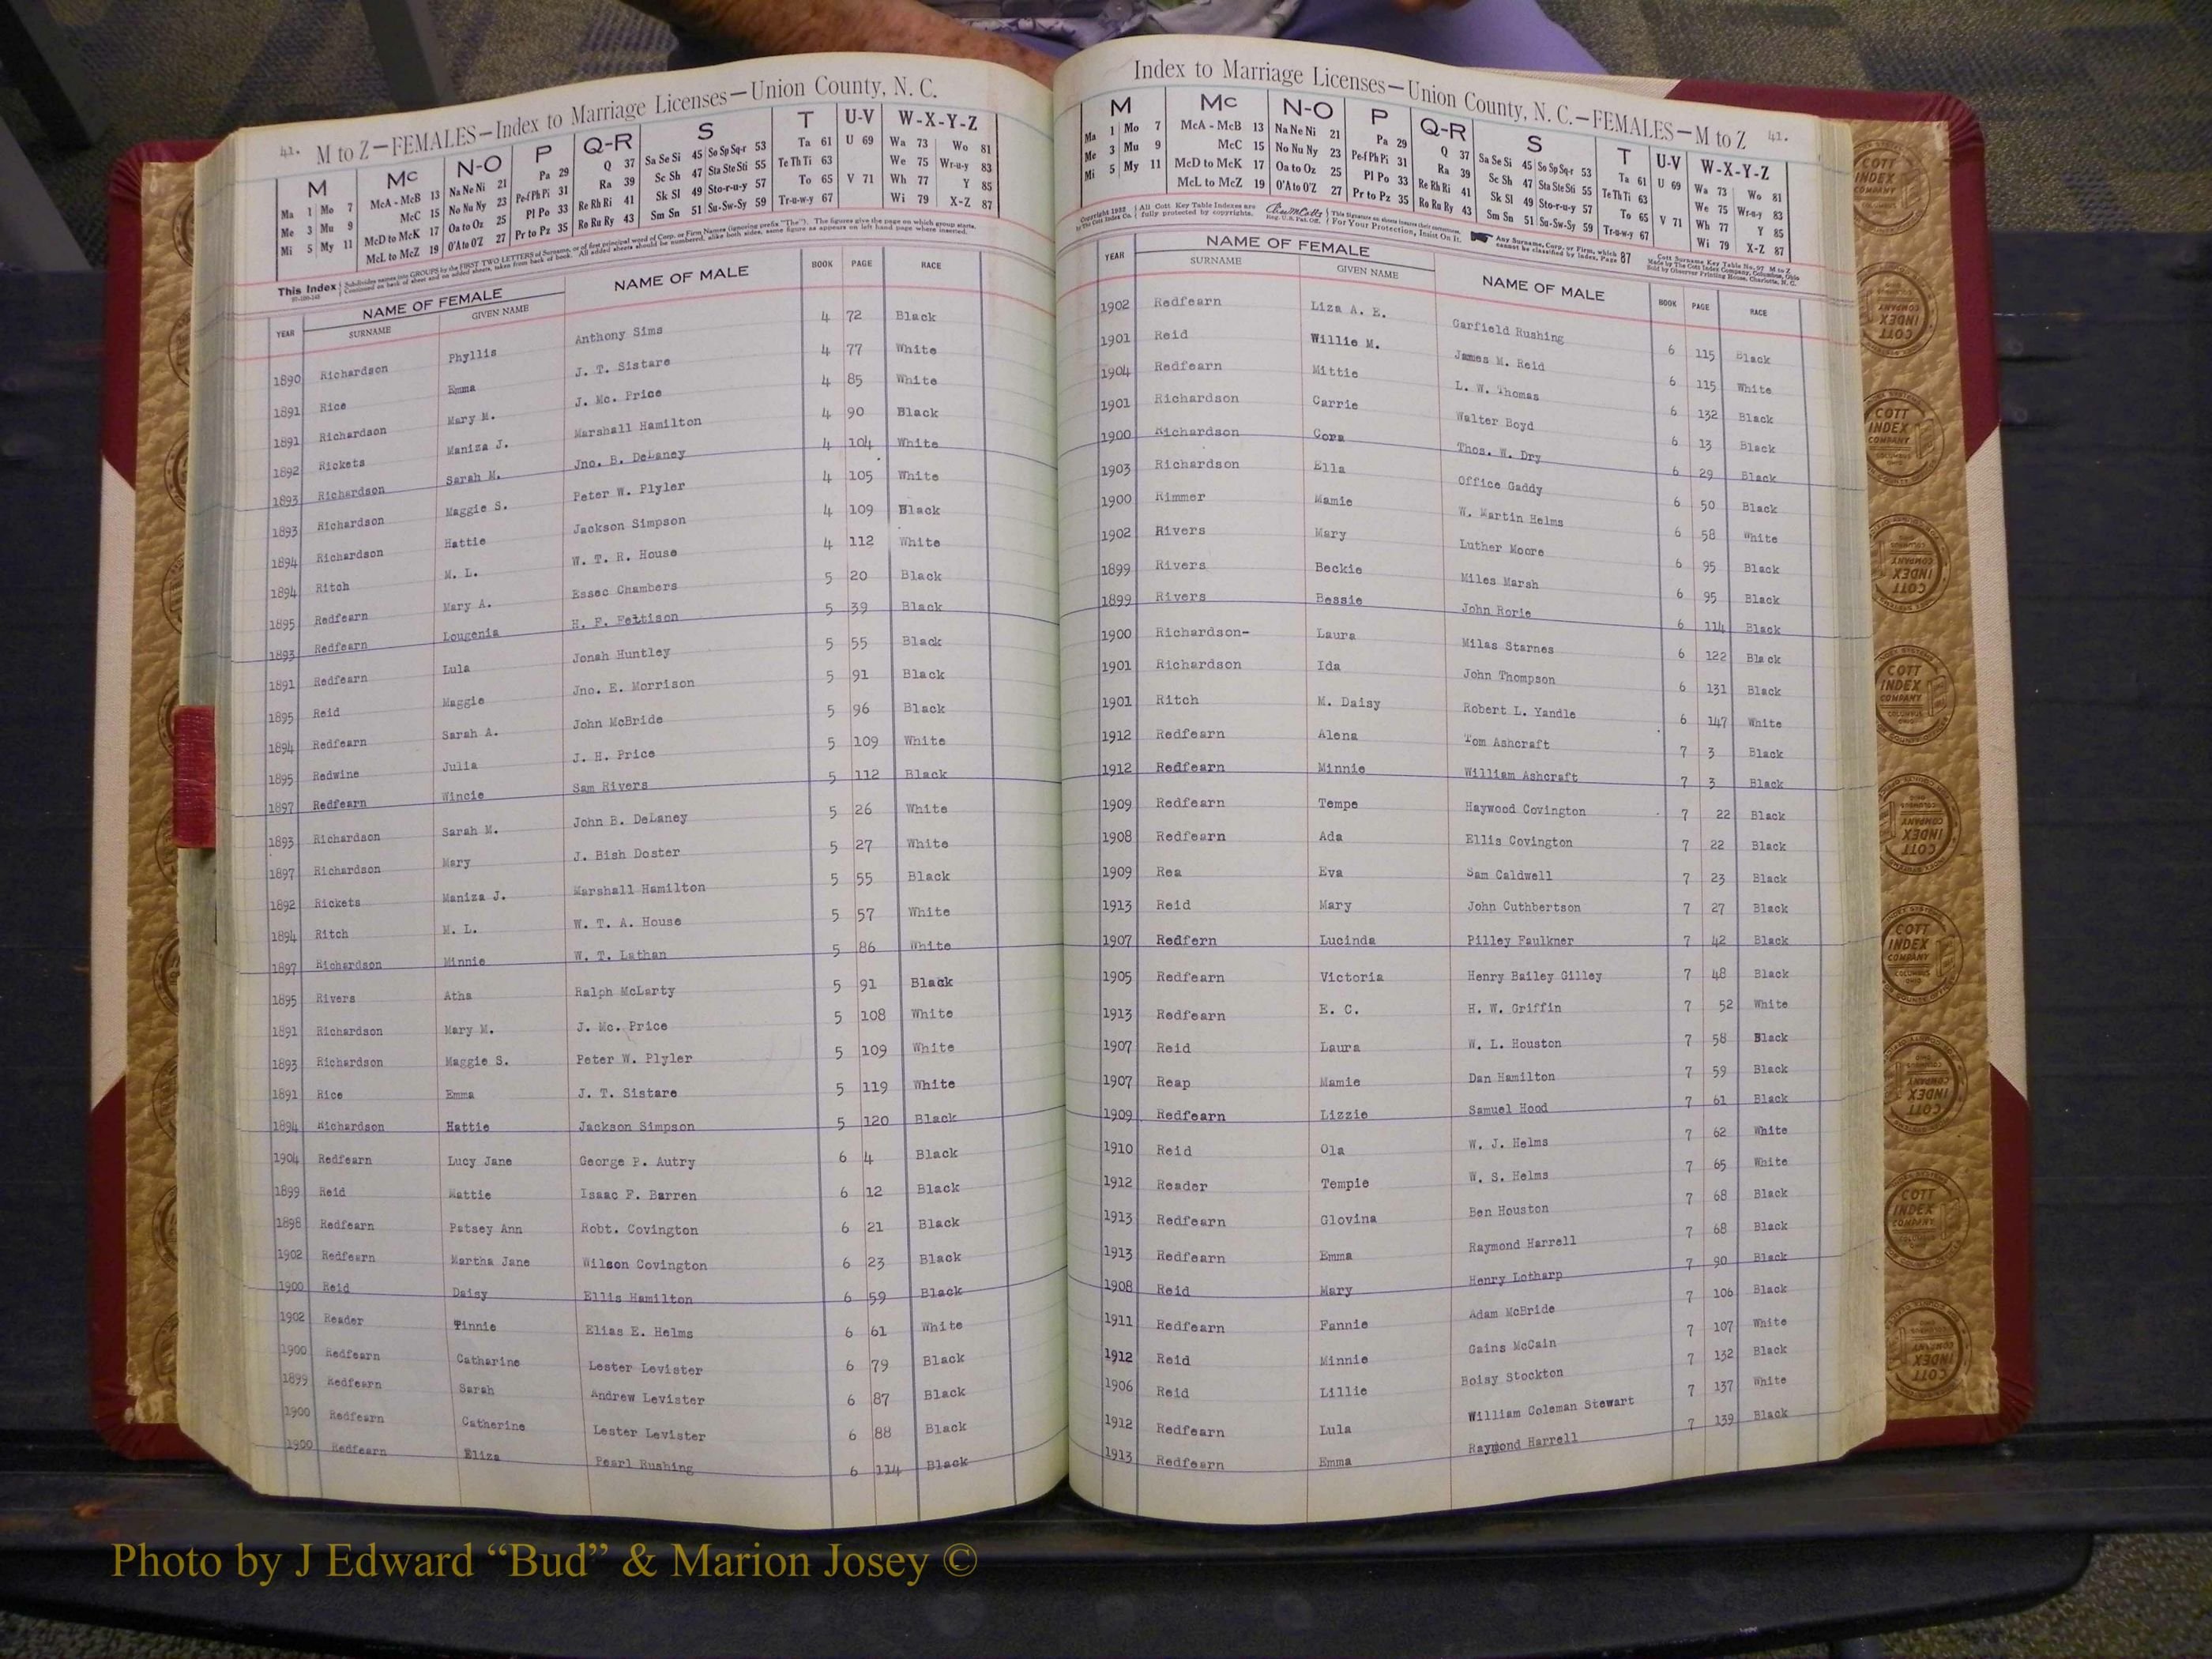 41. M to Z—FEMALES—Index to Marriage Licenses—Union County, N. C.
M Mc N-O P Q-R S T U-V W-X-Y-Z
Ma 1 Mo 7 McA - McB 13 Na Ne Ni 21 Pa 29 Q 37 Sa Se Si 45 So Sp Sq-r 53 Ta 61 U 69 Wa 73 Wo 81
Me 3 Mu 9 McC 15 No Nu Ny 23 Pe-f Ph Pi 31 Ra 39 Sc Sh 47 Sta Ste Sti 55 Te Th Ti 63 We 75 Wr-u-y 83
Mi 5 My 11 McD to McK 17 Oa to Oz 25 Pl Po 33 Re Rh Ri 41 Sk Sl 49 Sto-r-u-y 57 To 65 V 71 Wh 77 Y 85
McL to McZ 19 O'A to O'Z 27 Pr to Pz 35 Ro Ru Ry 43 Sm Sn 51 Su-Sw-Sy 59 Tr-u-w-y 67 Wi 79 X-Z 87
This Index Subdivides names into GROUPS by the FIRST TWO LETTERS of Surname, or of first principal word of Corp. or Firm Names (ignoring prefix "The"). The figures give the page on which group starts.
Continued on back of sheet and on added sheets, taken from back of book. All added sheets should be numbered, alike both sides, same figure as appears on left hand page where inserted.
YEAR NAME OF FEMALE SURNAME GIVEN NAME NAME OF MALE BOOK PAGE RACE
1890 Richardson Phyllis Anthony Sims 4 72 Black
1891 Rice Emma J. T. Sistare 4 77 White
1891 Richardson Mary M. J. Mc. Price 4 85 White
1892 Rickets Maniza J. Marshall Hamilton 4 90 Black
1893 Richardson Sarah M. Jno. B. DeLaney 4 104 White
1893 Richardson Maggie S. Peter W. Plyler 4 105 White
1894 Richardson Hattie Jackson Simpson 4 109 Black
1894 Ritch M. L. W. T. R. House 4 112 White
1895 Redfearn Mary A. Essec Chambers 5 20 Black
1893 Redfearn Lougenia H. F. Fettison 5 39 Black
1891 Redfearn Lula Jonah Huntley 5 55 Black
1895 Reid Maggie Jno. E. Morrison 5 91 Black
1894 Redfearn Sarah A. John McBride 5 96 Black
1895 Redwine Julia J. H. Price 5 109 White
1897 Redfearn Wincie Sam Rivers 5 112 Black
1893 Richardson Sarah M. John B. DeLaney 5 26 White
1897 Richardson Mary J. Bish Doster 5 27 White
1892 Rickets Maniza J. Marshall Hamilton 5 55 Black
1894 Ritch M. L. W. T. A. House 5 57 White
1897 Richardson Minnie W. T. Lathan 5 86 White
1895 Rivers Atha Ralph McLarty 5 91 Black
1891 Richardson Mary M. J. Mc. Price 5 108 White
1893 Richardson Maggie S. Peter W. Plyler 5 109 White
1891 Rice Emma J. T. Sistare 5 119 White
1894 Richardson Hattie Jackson Simpson 5 120 Black
1904 Redfearn Lucy Jane George P. Autry 6 4 Black
1899 Reid Mattie Isaac F. Barren 6 12 Black
1898 Redfearn Patsey Ann Robt. Covington 6 21 Black
1902 Redfearn Martha Jane Wilson Covington 6 23 Black
1900 Reid Daisy Ellis Hamilton 6 59 Black
1902 Reader Tinnie Elias E. Helms 6 61 White
1900 Redfearn Catharine Lester Levister 6 79 Black
1899 Redfearn Sarah Andrew Levister 6 87 Black
1900 Redfearn Catherine Lester Levister 6 88 Black
1900 Redfearn Eliza Pearl Rushing 6 114 Black
Index to Marriage Licenses—Union County, N. C.—FEMALES—M to Z 41.
M Mc N-O P Q-R S T U-V W-X-Y-Z
Ma 1 Mo 7 McA - McB 13 Na Ne Ni 21 Pa 29 Q 37 Sa Se Si 45 So Sp Sq-r 53 Ta 61 U 69 Wa 73 Wo 81
Me 3 Mu 9 McC 15 No Nu Ny 23 Pe-f Ph Pi 31 Ra 39 Sc Sh 47 Sta Ste Sti 55 Te Th Ti 63 We 75 Wr-u-y 83
Mi 5 My 11 McD to McK 17 Oa to Oz 25 Pl Po 33 Re Rh Ri 41 Sk Sl 49 Sto-r-u-y 57 To 65 V 71 Wh 77 Y 85
McL to McZ 19 O'A to O'Z 27 Pr to Pz 35 Ro Ru Ry 43 Sm Sn 51 Su-Sw-Sy 59 Tr-u-w-y 67 Wi 79 X-Z 87
All Cott Key Table Indexes are fully protected by copyrights. For Your Protection, Insist On It. Any Surname, Corp. or Firm, which cannot be classified by Index, Page 87
YEAR NAME OF FEMALE SURNAME GIVEN NAME NAME OF MALE BOOK PAGE RACE
1902 Redfearn Liza A. E. Garfield Rushing 6 115 Black
1901 Reid Willie M. James M. Reid 6 115 White
1904 Redfearn Mittie L. W. Thomas 6 132 Black
1901 Richardson Carrie Walter Boyd 6 13 Black
1900 Richardson Cora Thos. W. Dry 6 29 Black
1903 Richardson Ella Office Gaddy 6 50 Black
1900 Rimmer Mamie W. Martin Helms 6 58 White
1902 Rivers Mary Luther Moore 6 95 Black
1899 Rivers Beckie Miles Marsh 6 95 Black
1899 Rivers Bessie John Rorie 6 114 Black
1900 Richardson- Laura Milas Starnes 6 122 Black
1901 Richardson Ida John Thompson 6 131 Black
1901 Ritch M. Daisy Robert L. Yandle 6 147 White
1912 Redfearn Alena Tom Ashcraft 7 3 Black
1912 Redfearn Minnie William Ashcraft 7 3 Black
1909 Redfearn Tempe Haywood Covington 7 22 Black
1908 Redfearn Ada Ellis Covington 7 22 Black
1909 Rea Eva Sam Caldwell 7 23 Black
1913 Reid Mary John Cuthbertson 7 27 Black
1907 Redfern Lucinda Pilley Faulkner 7 42 Black
1905 Redfearn Victoria Henry Bailey Gilley 7 48 Black
1913 Redfearn E. C. H. W. Griffin 7 52 White
1907 Reid Laura W. L. Houston 7 58 Black
1907 Reap Mamie Dan Hamilton 7 59 Black
1909 Redfearn Lizzie Samuel Hood 7 61 Black
1910 Reid Ola W. J. Helms 7 62 White
1912 Reader Tempie W. S. Helms 7 65 White
1913 Redfearn Glovina Ben Houston 7 68 Black
1913 Redfearn Emma Raymond Harrell 7 68 Black
1908 Reid Mary Henry Lotharp 7 90 Black
1911 Redfearn Fannie Adam McBride 7 106 Black
1912 Reid Minnie Gains McCain 7 107 White
1906 Reid Lillie Boisy Stockton 7 132 Black
1912 Redfearn Lula William Coleman Stewart 7 137 White
1913 Redfearn Emma Raymond Harrell 7 139 Black
COTT INDEX COMPANY
Photo by J Edward “Bud” & Marion Josey ©